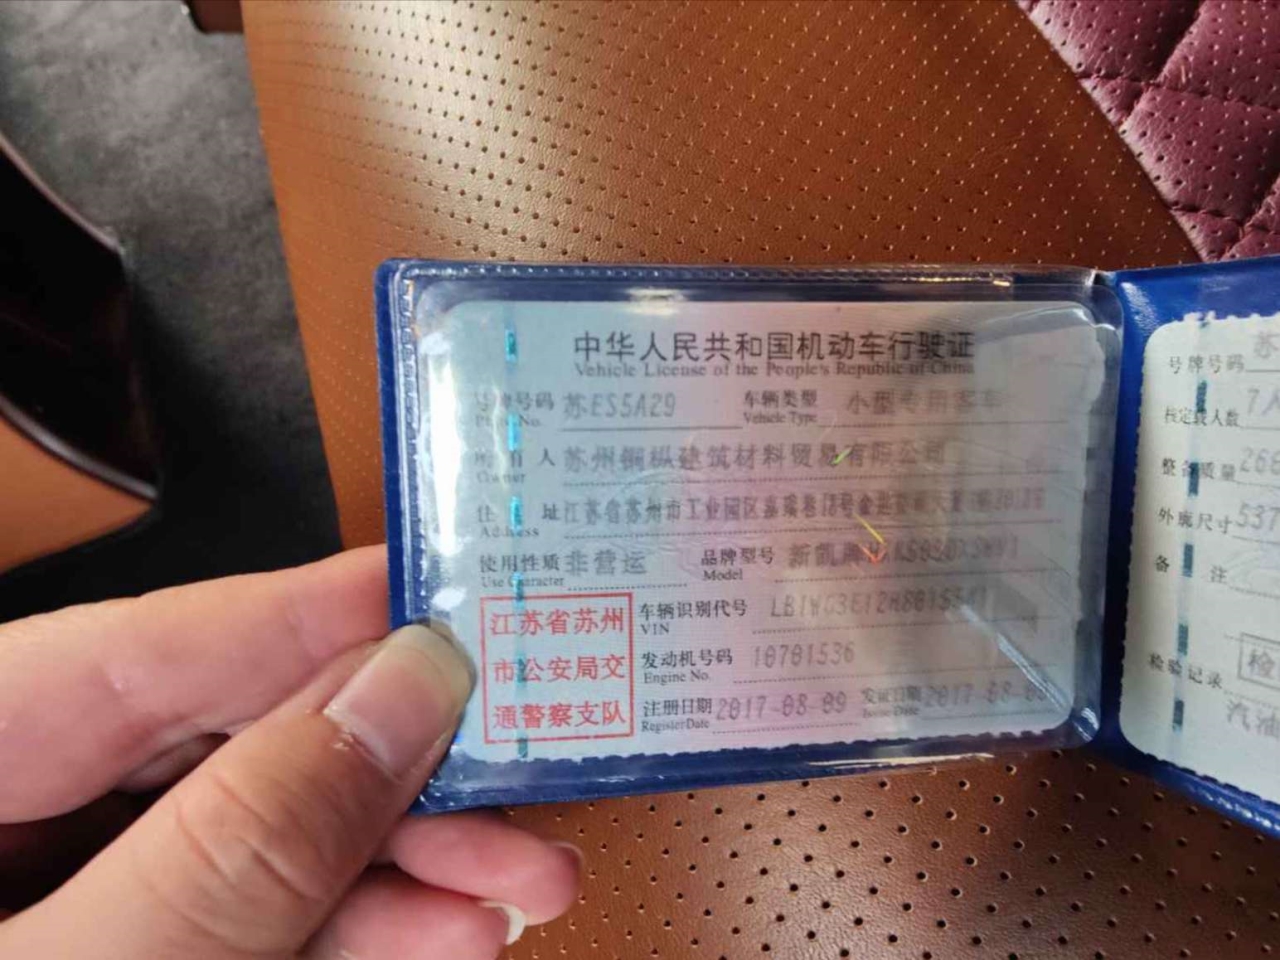 中华人民共和国机动车行驶证
Vehicle License of the People's Republic of China
号牌号码 苏ES5A29 车辆类型 小型专用客车
Plate No. Vehicle Type
所有人 苏州 建筑材料贸易有限公司
Owner
住址 江苏省苏州市工业园区
Address
使用性质 非营运 品牌型号 新凯
Use Character Model
江苏省苏州
市公安局交
通警察支队
车辆识别代号
VIN
发动机号码 10701536
Engine No.
注册日期 2017-08-09 发证日期 2017-08-
Register Date Issue Date
号牌号码 苏
核定载人数 7人
整备质量 266
外廓尺寸 537
备注
检验记录 检
汽油